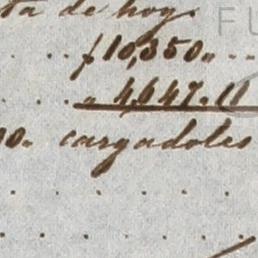 ta de hoy.
. . . $10,350.. . .
. . . " 4,647.11
00. cargadoles